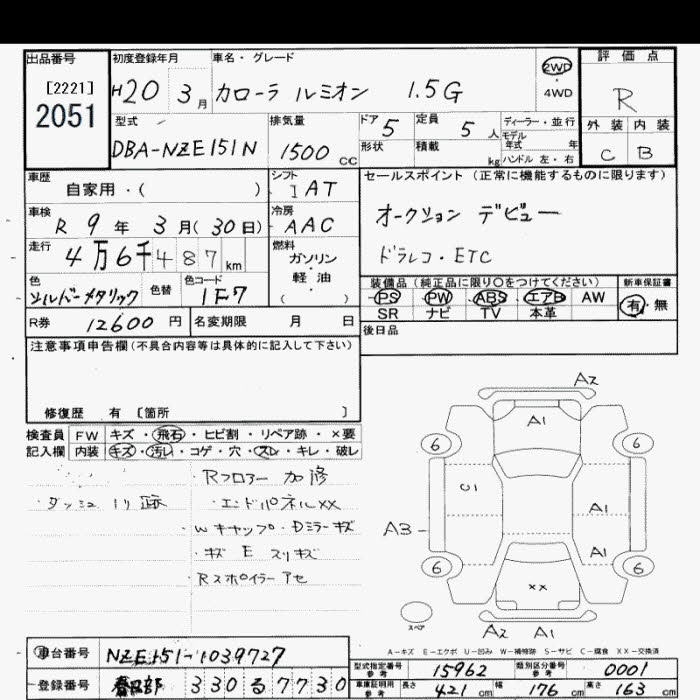 出品番号
[2221]
2051
初度登録年月
H20 3月
車名・グレード
カローラ ルミオン 1.5G
2WD
4WD
評価点
R
外装 内装
C B
型式
DBA-NZE151N
排気量
1500 CC
ドア 5
形状
定員 5人
積載 kg
ディーラー・並行
モデル年式 年
ハンドル 左・右
車歴
自家用・( )
シフト
IAT
車検
R 9年 3月(30日)
冷房
AAC
走行
4万6千487km
燃料
ガソリン
軽・油
( )
色
シルバーメタリック
色替
色コード
1F7
R券 12600円
名変期限 月 日
セールスポイント (正常に機能するものに限ります)
オークション デビュー
ドラレコ・ETC
装備品 (純正品に限り〇をつけてください)
PS PW ABS エアB AW
SR ナビ TV 本革
新車保証書
有・無
後日品
注意事項申告欄(不具合内容等は具体的に記入して下さい)
修復歴 有 〔箇所 〕
検査員記入欄
FW キズ・飛石・ヒビ割・リペア跡・×要
内装 キズ・汚レ・コゲ・穴・スレ・キレ・破レ
Rフロアー 加修
・ダッシュ 跡
・エンドパネルXX
・Wキャップ・Dミラーキズ
・キズ E スリキズ
Rスポイラー アセ
A2
A1
6 6
C1
A1
A3
A1
6 6
XX
スペア
A2 A1
A-キズ E-エクボ U-凹み W-補修跡 S-サビ C-腐食 XX-交換済
車台番号 NZE151-1039727
登録番号 春日部 330 る 7730
型式指定番号 参考 15962
類別区分番号 参考 0001
車庫証明用 参考 長さ 421cm 幅 176cm 高さ 163cm